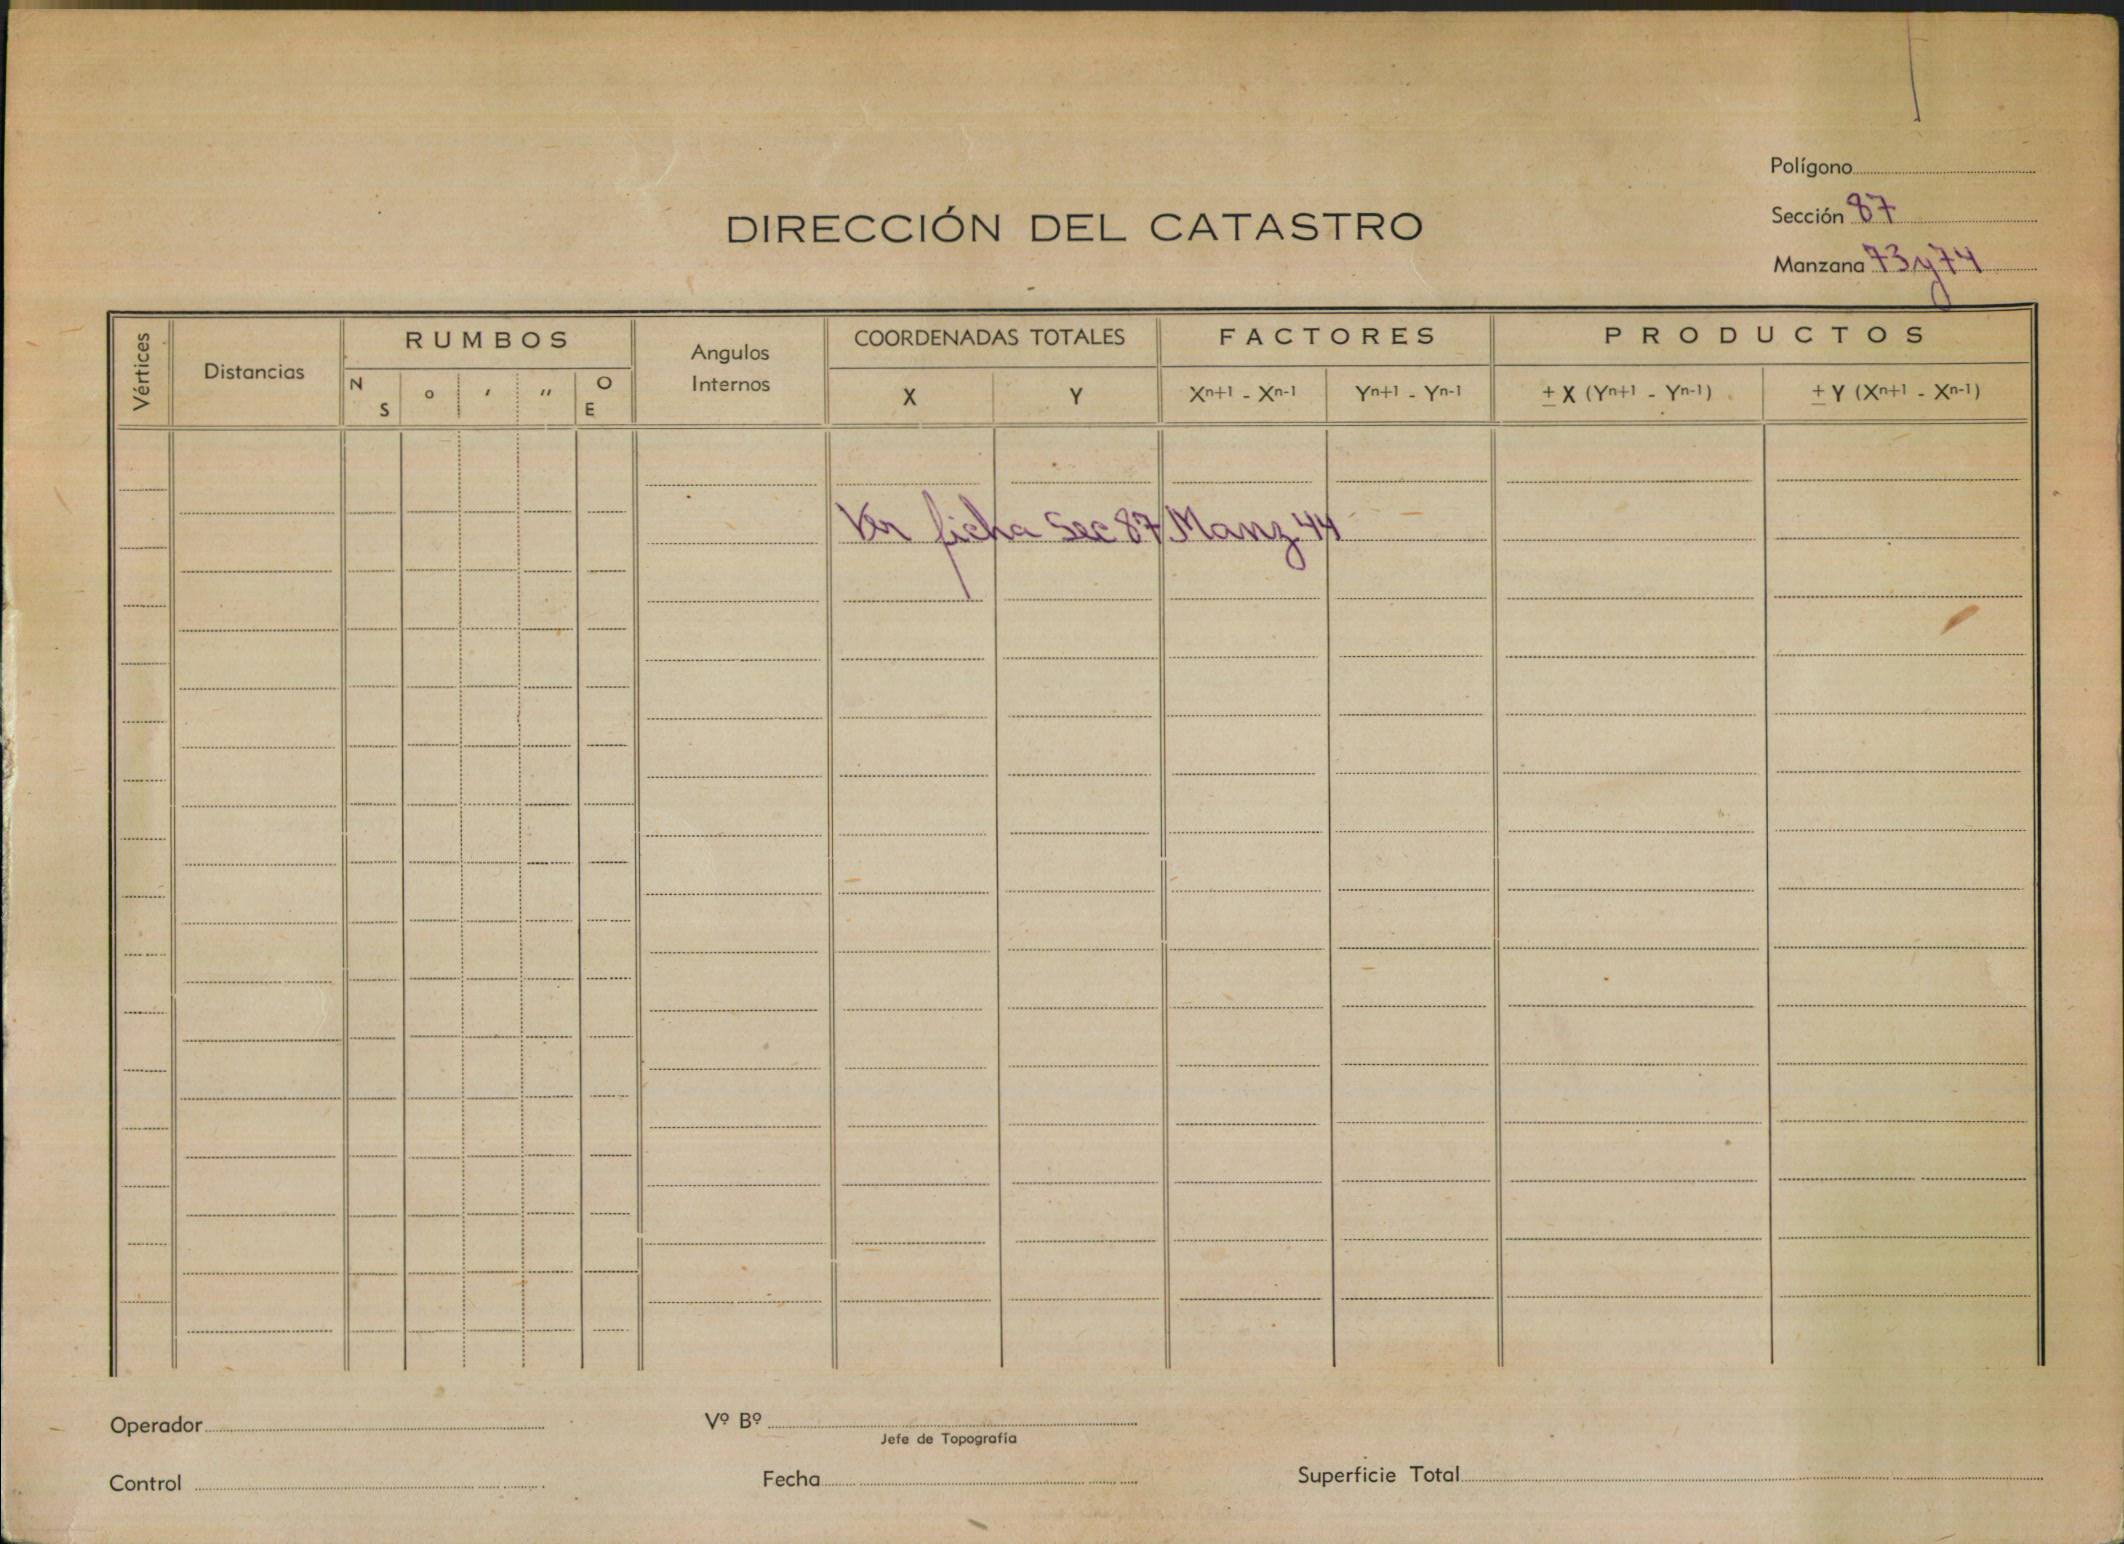 Polígono
DIRECCIÓN DEL CATASTRO
Sección 87
Manzana 73 y 74
Vértices
Distancias
RUMBOS
N
S
o
'
"
O
E
Angulos
Internos
COORDENADAS TOTALES
X
Y
FACTORES
Xn+1 - Xn-1
Yn+1 - Yn-1
PRODUCTOS
± X (Yn+1 - Yn-1)
± Y (Xn+1 - Xn-1)
Ver ficha Sec 87 Manz 44
Operador
Vº Bº
Jefe de Topografía
Control
Fecha
Superficie Total